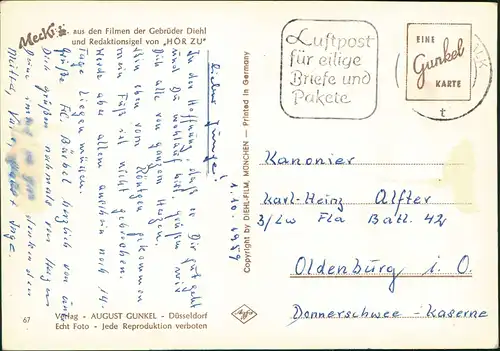 Mecki
aus den Filmen der Gebrüder Diehl
und Redaktionsigel von „HÖR ZU"
1.10.1959
Lieber Junge!
In der Hoffnung, daß es Dir gut geht
und Du wohlauf bist, grüßen wir
Dich alle von ganzem Herzen.
Bin eben vom Röntgen gekommen
mein Fuß ist nicht gebrochen.
Werde aber allem anschein noch 14
Tage liegen müssen.
Grüße Frl. Bärbel herzlich von uns
Dich grüßen nochmals von Herzen
Deine immer an Dich denkenden
Mutter, Vater, Inge.
67
Verlag - AUGUST GUNKEL - Düsseldorf
Echt Foto - Jede Reproduktion verboten
Copyright by DIEHL-FILM, MÜNCHEN — Printed in Germany
Agfa
Luftpost
für eilige
Briefe und
Pakete
EINE
Gunkel
KARTE
t
Kanonier
Karl-Heinz Alfter
3/Lw Fla Batl. 42
Oldenburg i. O.
Donnerschwee-Kaserne